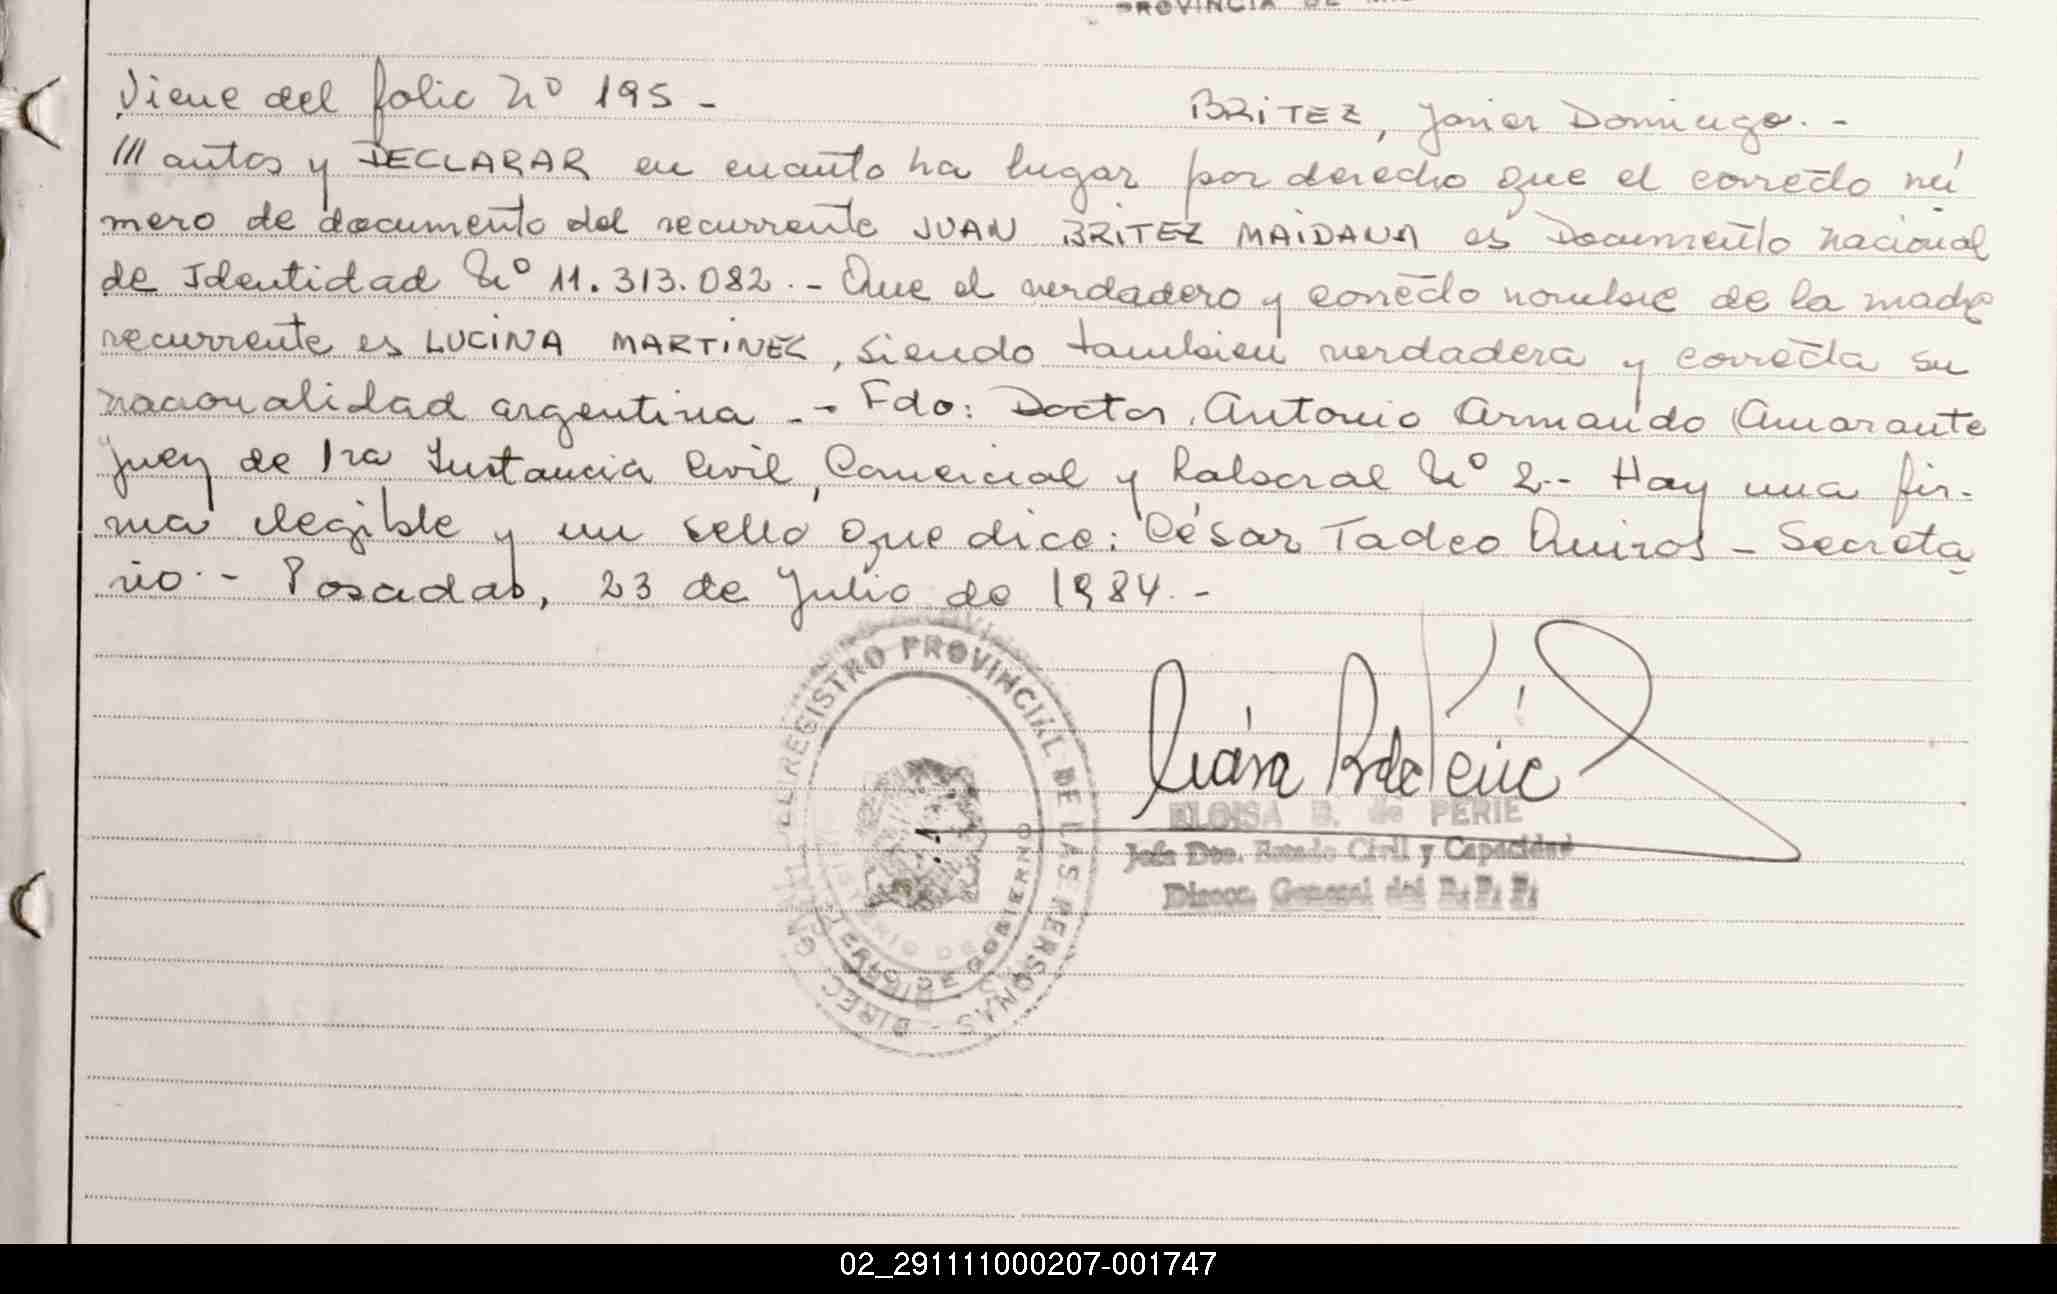 PROVINCIA DE MI
Viene del folio Nº 195 -
BRITEZ, Javier Domingo. -
/// autos y DECLARAR en cuanto ha lugar por derecho que el correcto nú
mero de documento del recurrente JUAN BRITEZ MAIDANA es Documento nacional
de Identidad Nº 11.313.082. - Que el verdadero y correcto nombre de la madre
recurrente es LUCINA MARTINEZ, siendo tambien verdadera y correcta su
nacionalidad argentina - Fdo: Doctor Antonio Armando Amarante
Juez de 1ra Instancia Civil, Comercial y Laboral Nº 2.- Hay una fir-
ma ilegible y un sello que dice: César Tadeo Quiros - Secreta
rio. - Posadas, 23 de Julio de 1984. -
DIREC GENERAL DEL REGISTRO PROVINCIAL DE LAS PERSONAS -
MINISTERIO DE GOBIERNO
ELOISA B. de PERIE
Jefa Dto. Estado Civil y Capacidad
Direcc. General del R. P. P.
02_291111000207-001747